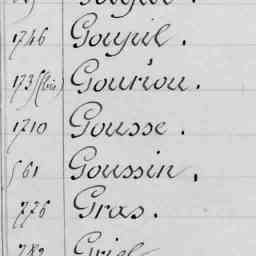 1746 Goujul.
1735(bis) Gouriou.
1710 Gousse.
561 Goussin.
776 Gras.
782 Griel